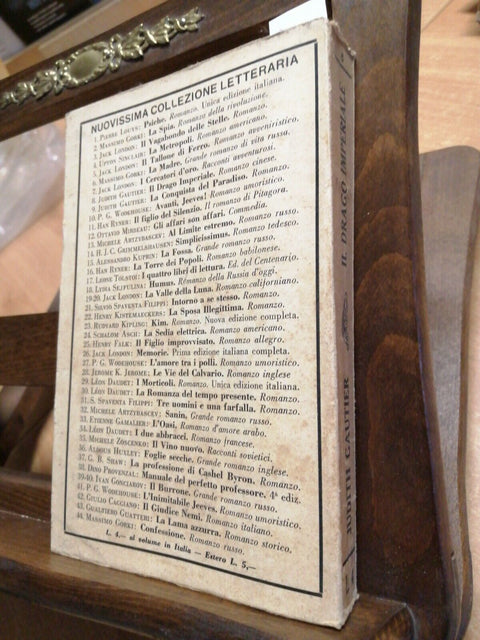 NUOVISSIMA COLLEZIONE LETTERARIA
1. PIERRE LOUYS: Psiche. Romanzo. Unica edizione italiana.
2. MASSIMO GORKI: La Spia. Romanzo della rivoluzione.
3. JACK LONDON: Il Vagabondo delle Stelle. Romanzo.
4. UPTON SINCLAIR: La Metropoli. Romanzo americano.
5. JACK LONDON: Il Tallone di Ferro. Romanzo avveniristico.
6. MASSIMO GORKI: La Madre. Grande romanzo di vita russa.
7. JACK LONDON: I Cercatori d'oro. Racconti avventurosi.
8. JUDITH GAUTIER: Il Drago Imperiale. Romanzo cinese.
9. JUDITH GAUTIER: La Conquista del Paradiso. Romanzo.
10. P. G. WODEHOUSE: Avanti, Jeeves! Romanzo umoristico.
11. HAN RYNER: Il figlio del Silenzio. Il romanzo di Pitagora.
12. OTTAVIO MIRBEAU: Gli affari son affari. Commedia.
13. MICHELE ARTZYBASCEV: Al Limite estremo. Romanzo russo.
14. H. J. C. GRIMMELSHAUSEN: Simplicissimus. Romanzo tedesco.
15. ALESSANDRO KUPRIN: La Fossa. Grande romanzo russo.
16. HAN RYNER: La Torre dei Popoli. Romanzo babilonese.
17. LEONE TOLSTOI: I quattro libri di lettura. Ed. del Centenario.
18. LYDIA SEJFULINA: Humus. Romanzo della Russia d'oggi.
19-20. JACK LONDON: La Valle della Luna. Romanzo californiano.
21. SILVIO SPAVENTA FILIPPI: Intorno a se stesso. Romanzo.
22. HENRY KISTEMAECKERS: La Sposa Illegittima. Romanzo.
23. RUDYARD KIPLING: Kim. Romanzo. Nuova edizione completa.
24. SCHALOM ASCH: La Sedia elettrica. Romanzo americano.
25. HENRY FALK: Il Figlio improvvisato. Romanzo allegro
26. JACK LONDON: Memorie. Prima edizione italiana completa.
27. P. G. WODEHOUSE: L'amore tra i polli. Romanzo umoristico.
28. JEROME K. JEROME: Le Vie del Calvario. Romanzo inglese
29. LÉON DAUDET: I Morticoli. Romanzo. Unica edizione italiana.
30. LÉON DAUDET: La Romanza del tempo presente. Romanzo.
31. S. SPAVENTA FILIPPI: Tre uomini e una farfalla. Romanzo.
32. MICHELE ARTZYBASCEV: Sanin, Grande romanzo russo.
33. ETIENNE GAMALIER: L'Oasi. Romanzo d'amore arabo.
34. LÉON DAUDET: I due abbracci. Romanzo francese.
35. MICHELE ZOSCENKO: Il Vino nuovo. Racconti sovietici.
36. ALDOUS HUXLEY: Foglie secche. Grande romanzo inglese.
37. G. B. SHAW: La professione di Cashel Byron. Romanzo.
38. DINO PROVENZAL: Manuale del perfetto professore. 4ª ediz.
39-40. IVAN GONCIAROV: Il Burrone. Grande romanzo russo.
41. P. G. WODEHOUSE: L'Inimitabile Jeeves. Romanzo umoristico.
42. GIULIO CAGGIANO: Il Giudice Nemi. Romanzo italiano.
43. GUALTIERO GUATTERI: La Lama azzurra. Romanzo storico.
44. MASSIMO GORKI: Confessione. Romanzo russo.
L. 4,— al volume in Italia - Estero L. 5,—
JUDITH GAUTIER
IL DRAGO IMPERIALE